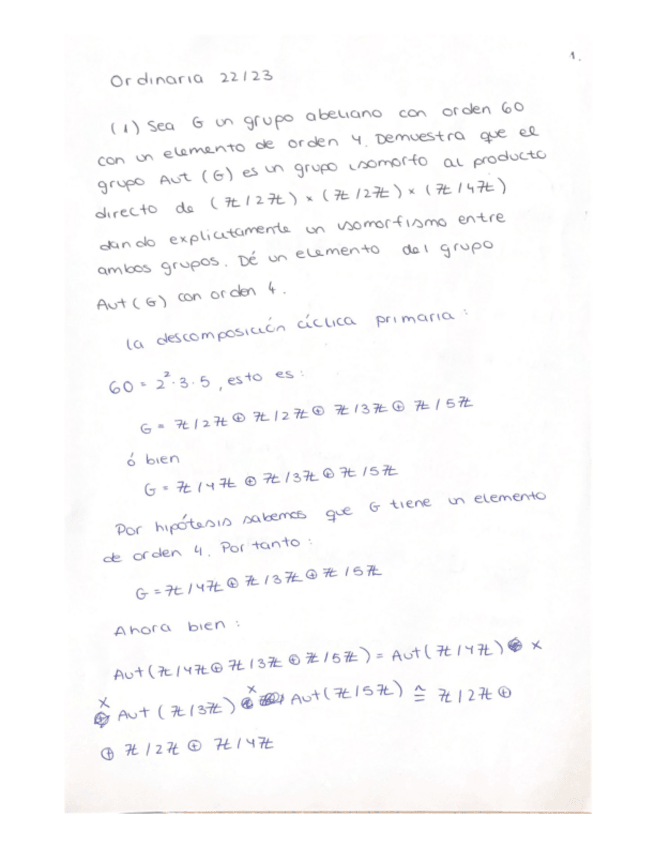 1.
Ordinaria 22/23
(1) Sea G un grupo abeliano con orden 60
con un elemento de orden 4. Demuestra que el
grupo Aut (G) es un grupo isomorfo al producto
directo de (ℤ/2ℤ) × (ℤ/2ℤ) × (ℤ/4ℤ)
dando explicitamente un isomorfismo entre
ambos grupos. Dé un elemento del grupo
Aut(G) con orden 4.
La descomposición cíclica primaria:
60 = 2²·3·5, esto es:
G = ℤ/2ℤ ⊕ ℤ/2ℤ ⊕ ℤ/3ℤ ⊕ ℤ/5ℤ
ó bien
G = ℤ/4ℤ ⊕ ℤ/3ℤ ⊕ ℤ/5ℤ
Por hipótesis sabemos que G tiene un elemento
de orden 4. Por tanto:
G = ℤ/4ℤ ⊕ ℤ/3ℤ ⊕ ℤ/5ℤ
Ahora bien:
Aut(ℤ/4ℤ ⊕ ℤ/3ℤ ⊕ ℤ/5ℤ) = Aut(ℤ/4ℤ) ×
× Aut (ℤ/3ℤ) × Aut(ℤ/5ℤ) ≅ ℤ/2ℤ ⊕
⊕ ℤ/2ℤ ⊕ ℤ/4ℤ